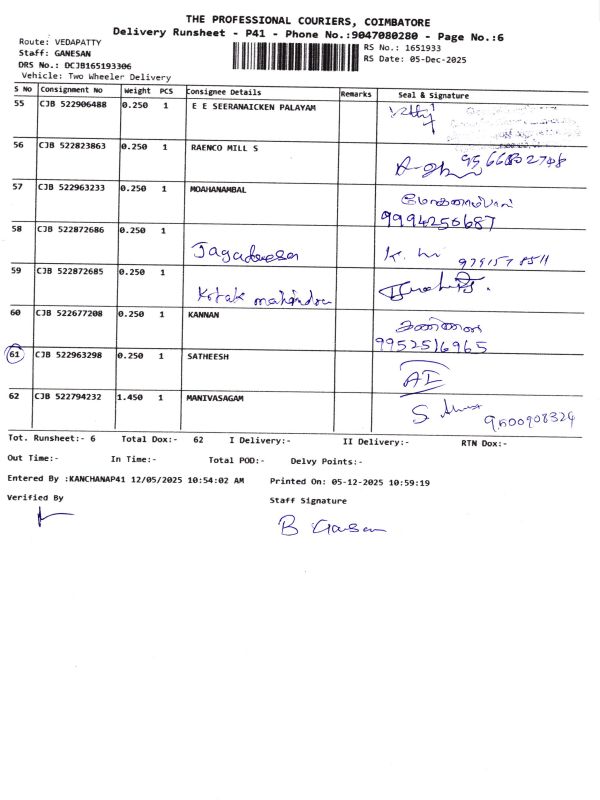 THE PROFESSIONAL COURIERS, COIMBATORE
Delivery Runsheet - P41 - Phone No.:9047080280 - Page No.:6
Route: VEDAPATTY
Staff: GANESAN
DRS No.: DCJB165193306
Vehicle: Two Wheeler Delivery
RS No.: 1651933
RS Date: 05-Dec-2025
S No Consignment No Weight PCS Consignee Details Remarks Seal & Signature
55 CJB 522906488 0.250 1 E E SEERANAICKEN PALAYAM
56 CJB 522823863 0.250 1 RAENCO MILL S
57 CJB 522963233 0.250 1 MOAHANAMBAL மோகனாம்பாள்
9994256687
58 CJB 522872686 0.250 1 Jagadeesan
59 CJB 522872685 0.250 1 Kotak mahindra
60 CJB 522677208 0.250 1 KANNAN கண்ணன்
9952516965
61 CJB 522963298 0.250 1 SATHEESH
62 CJB 522794232 1.450 1 MANIVASAGAM 9500908324
Tot. Runsheet:- 6 Total Dox:- 62 I Delivery:- II Delivery:- RTN Dox:-
Out Time:- In Time:- Total POD:- Delvy Points:-
Entered By :KANCHANAP41 12/05/2025 10:54:02 AM Printed On: 05-12-2025 10:59:19
Verified By Staff Signature
B Ganesan